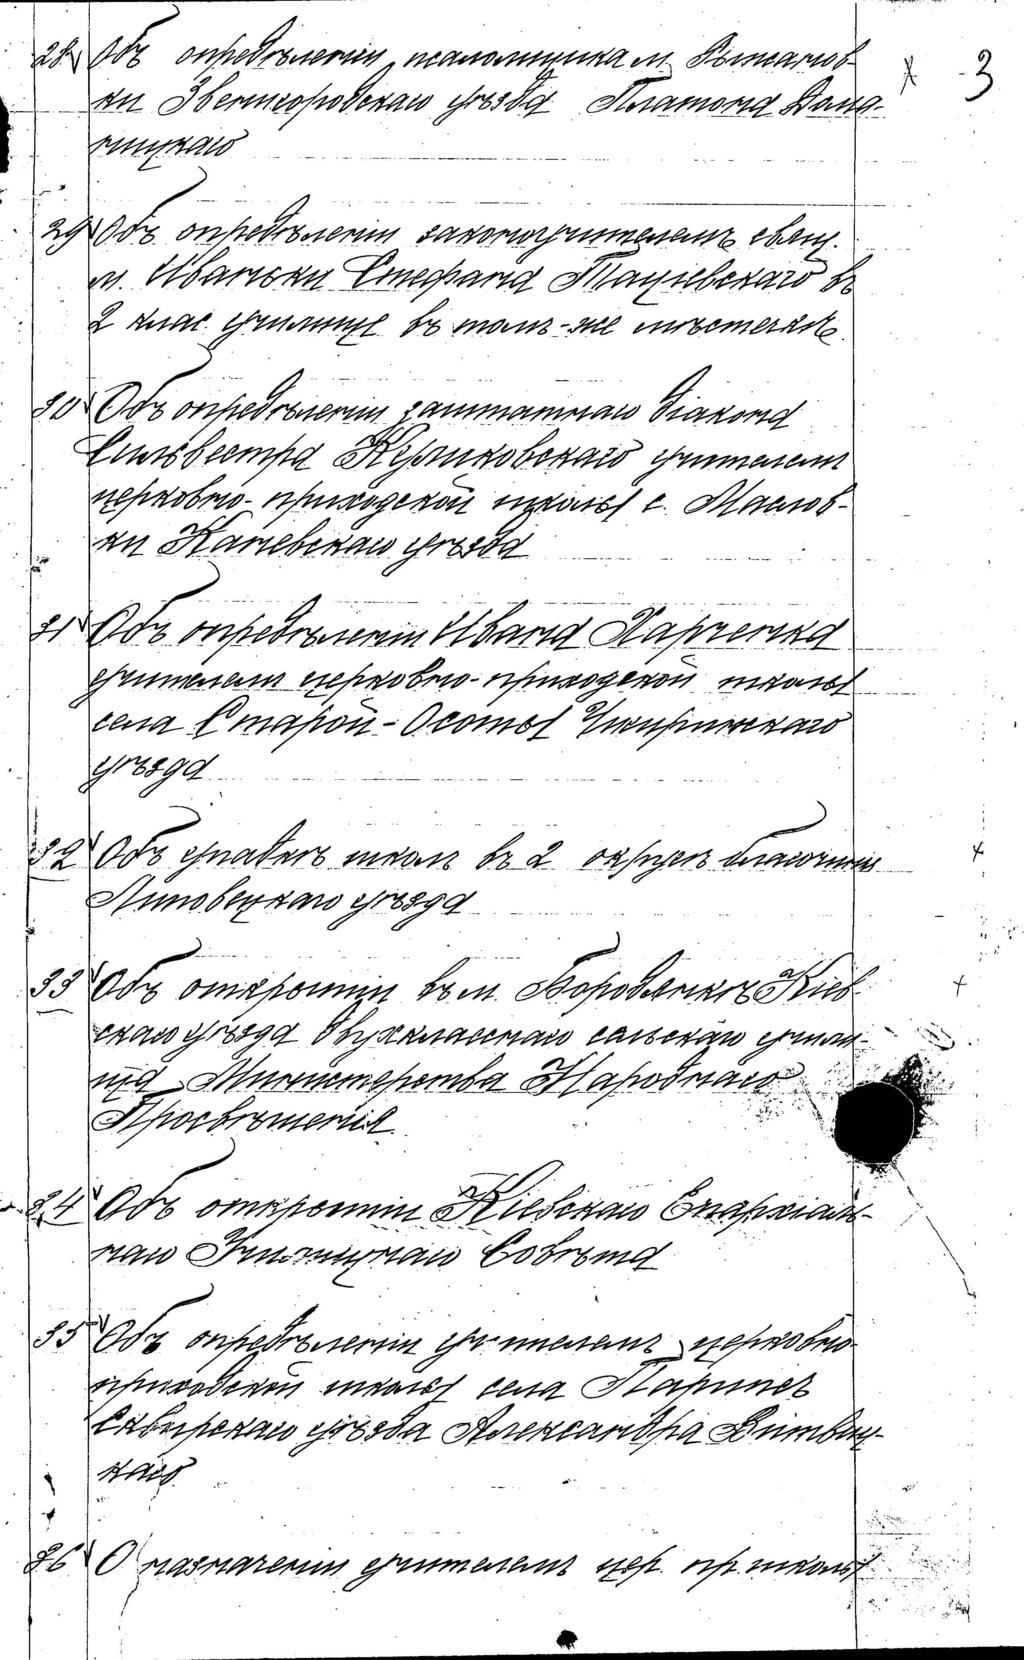 3
28 Объ опредѣленіи псаломщика м. Рыжанов-
ки Звенигородскаго уѣзда Платона Дома-
ницкаго
29 Объ опредѣленіи законоучителемъ свящ.
м. Иваньки Стефана Тащіевскаго въ
2 клас. училище въ томъ-же мѣстечкѣ.
30 Объ опредѣленіи заштатнаго діакона
Сильвестра Куликовскаго учителемъ
церковно-приходской школы с. Маслов-
ки Каневскаго уѣзда
31 Объ опредѣленіи Ивана Харченка
учителемъ церковно-приходской школы
села Старой-Осоты Чигиринскаго
уѣзда
32 Объ упадкѣ школъ въ 2 округѣ благочинія
Липовецкаго уѣзда
33 Объ открытіи въ м. Бородянкѣ Кіев-
скаго уѣзда двухкласснаго сельскаго учили-
ща Министерства Народнаго
Просвѣщенія.
34 Объ открытіи Кіевскаго Епархіаль-
наго Училищнаго Совѣта
35 Объ опредѣленіи учителемъ церковно-
приходской школы села Паринецъ
Сквирскаго уѣзда Александра
каго
36 О назначеніи учителемъ цер. пр. школы